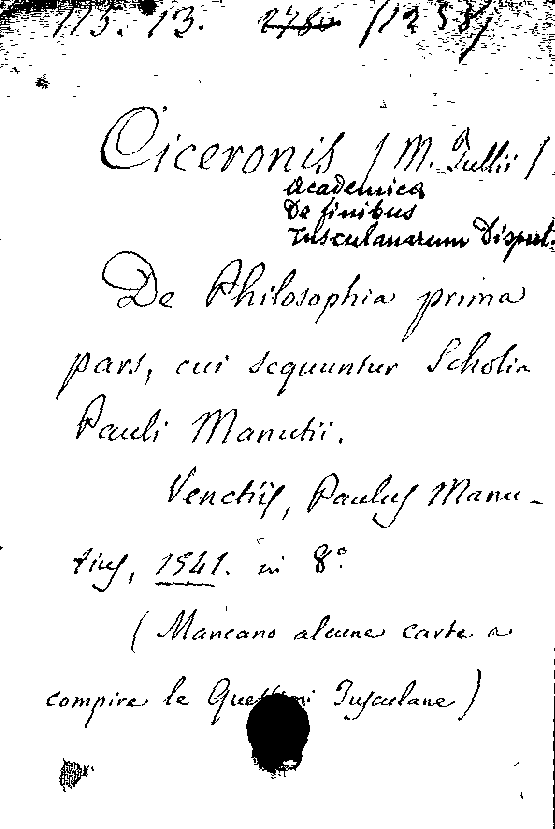 113. 13. 2780 (1253)
Ciceronis (M. Tullii)
Academica
De finibus
Tusculanarum Disput.
De Philosophia prima
pars, cui sequuntur Scholia
Pauli Manutii.
Venetiis, Paulus Manu-
tius, 1541. in 8°
(Mancano alcune carte a
compire le Questioni Tusculane)